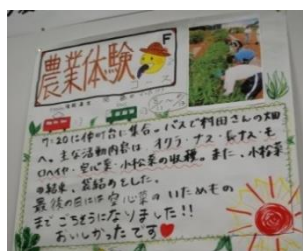 農業体験
F
コース
7:20に仲町台に集合。バスで村田さんの畑
へ。主な活動内容は、オクラ・ナス・長ナス・モ
ロヘイヤ・空心菜・小松菜の収穫。また、小松菜
の結束、袋詰めをした。
最後の日には空心菜のいためもの
までごちそうになりました!!
おいしかったです♥